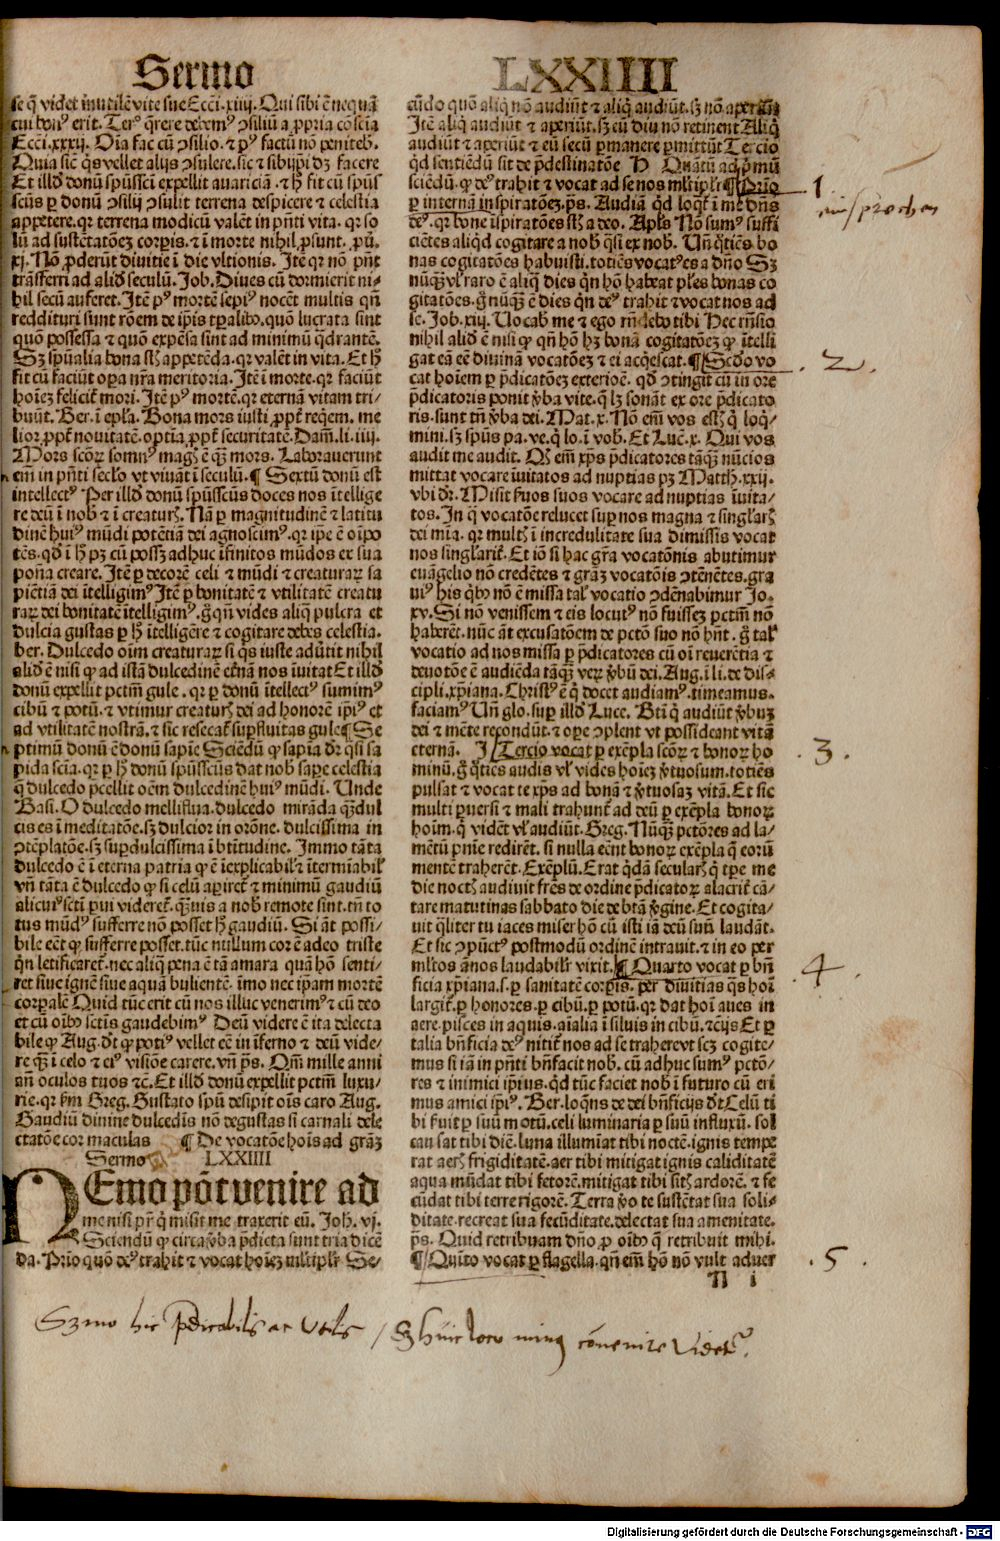 Sermo LXXIIII
se q̄ videt inutilē vite sue Ecci. xiiij. Qui sibi ē neq̄ꝫ
cui bonꝰ erit. Terº q̄rere debemꝰ ↄsiliū a ꝓpria cōsciā
Ecci. xxxij. Oīa fac cū ↄsilio. ⁊ pꝰ factū nō peniteb.
Quia sic̄ q̄s vellet alijs ↄsulere. sic ⁊ sibijpi dꝫ facere
Et illd donū spūssci expellit avariciā. ⁊ h̄ fit cū spūs
scūs ꝑ donū ↄsilij ↄsulit terrena despicere ⁊ celestia
appetere. qꝛ terrena modicū valēt in pn̄ti vita. qꝛ so
lū ad sustētatōeꝫ corpis. ⁊ ī morte nihil ꝓsunt. ꝓū.
xj. Nō ꝓderūt divitie ī die vltionis. Itē qꝛ nō pn̄t
trāsferri ad aliḋ seculū. Job. Dives cū dormierit ni-
hil secū auferet. Itē pꝰ mortē sepiꝰ nocēt multis qn̄
reddituri sunt rōem de ip̄is tꝑalibꝰ. quō lucrata sint
quō possessa ⁊ quō expēsa sint ad minimū q̄drantē.
Sꝫ spūalia bona sꝫ appetēda. qꝛ valēt in vita. Et h̄
fit cū faciūt oꝑa nr̄a meritoria. Itē ī morte. qꝛ faciūt
hoīeꝫ felicit̄ mori. Itē pꝰ mortē. qꝛ eternā vitam tri-
buūt. Ber. ī epl̄a. Bona mors iusti ꝓpt̄ reqem. me
lior ꝓpt̄ nouitatē. optīa ꝓpt̄ securitatē. Dam̄. li. iiij.
Mors scōꝝ somnꝰ magꝭ ē q̄ꝫ mors. Laborauerunt
em̄ in pn̄ti seclo vt viuāt ī seculū. ¶ Sextū donū est
intellectꝰ Per illd donū spūsscūs doces nos ītellige
re deū ī nob̄ ⁊ ī creaturꝭ. Nā ꝑ magnitudinē ⁊ latitu
dinē huiꝰ mūdi potētiā dei agnoscimꝰ. qꝛ ip̄e ē oīpo
tēs. qḋ ī h̄ pꝫ cū possꝫ adhuc īfinitos mūdos ex sua
potn̄a creare. Itē ꝑ decorē celi ⁊ mūdi ⁊ creaturaꝝ sa
piētiā dei ītelligimꝰ Itē ꝑ bonitatē ⁊ vtilitatē creatu
raꝝ dei bonitatē ītelligimꝰ. g̊ qn̄ vides aliq̄ pulcra et
dulcia gustas ꝑ h̄ ītelligere ⁊ cogitare debes celestia.
ber. Dulcedo oīm creaturaꝝ si q̄s iuste adūtit nihil
aliḋ ē nisi ꝙ ad istā dulcedinē et̄nā nos īuitat Et illd
donū expellit pctm̄ gule. qꝛ ꝑ donū ītellectꝰ sumimꝰ
cibū ⁊ potū. ⁊ vtimur creaturꝭ dei ad honorē ip̄iꝰ et
ad vtilitatē nostrā. ⁊ sic resecat̄ suꝑfluitas gule ¶ Se
ptimū donū ē donū sapīe Sciēdū ꝙ sapīa dr̄ q̄si sa
pida scīa. qꝛ ꝑ h̄ donū spūsscūs dat nob saꝑe celestia
q̄ dulcedo p̄cellit oēm dulcedinē huiꝰ mūdi. Unde
Basi. O dulcedo melliflua. dulcedo mirāda q̄ꝫ dul
cis es ī meditatōe. sꝫ dulcior in orōne. dulcissima in
ↄtēplatōe. sꝫ suꝑdulcissima ī btītudine. Immo tāta
dulcedo ē ī eterna patria ꝙ ē īexplicabil̄ ⁊ īt̄miabil̄
vn̄ tāta ē dulcedo ꝙ si celū aꝑiret̄ ⁊ minimū gaudiū
alicuiꝰ scti ꝑui videret̄. q̄ꝫuis a nob̄ remote sint. tn̄ to
tus mūdꝰ sufferre nō posset h̄ gaudiū. Si āt possi-
bile eēt ꝙ sufferre posset. tūc nullum cor ē adeo triste
qn̄ letificaret̄. nec aliq̄ pena ē tā amara quā hō senti-
ret siue ignē siue aquā bulientē. imo nec ip̄am mortē
corꝑalē Quid tūc erit cū nos illuc venerimꝰ ⁊ cū deo
et cū oībꝰ sctīs gaudebimꝰ Deū videre ē ita delecta
bile ꝙ Aug. dt̄ ꝙ potiꝰ vellet eē in īferno ⁊ deū vide-
re q̄ꝫ ī celo ⁊ eiꝰ visiōe carere. vn̄ ps̄. Qm̄ mille anni
an̄ oculos tuos ⁊c̄. Et illd donū expellit pctm̄ luxu-
rie. qꝛ ẜm Greg. Gustato spū desipit oīs caro Aug.
Gaudiū diuine dulcedīs nō degustas si carnali dele
ctatōe cor maculas ¶ De vocatōe hoīs ad grāꝫ
Sermo LXXIIII
NEmo pōt venire ad
me nisi pr̄ q̄ misit me traxerit eū. Joh. vj.
Sciendū ꝙ circa v̄ba p̄dicta sunt tria dicē
da. Prīo quō deꝰ trahit ⁊ vocat hoīeꝫ mltiplr̄ Se-
cūdo quō aliq̄ nō audiūt ⁊ aliq̄ audiūt. sꝫ nō aꝑiūt
Itē aliq̄ audiūt ⁊ aꝑiūt. sꝫ cū diu nō retinent Aliq̄
audiūt ⁊ aꝑiūt ⁊ eū secū ꝑmanere ꝑmittūt Tercio
qḋ sentiēdū sit de p̄destinatōe H Quātū ad p̄mū
sciēdū. ꝙ deꝰ trahit ⁊ vocat ad se nos mltipl̄r ¶ Prīo
ꝑ internā inspiratōeꝫ. ps̄. Audiā qḋ loqt̄ ī me dn̄s
deꝰ. qꝛ bone īspiratōes sꝫ a deo. Apl̄s Nō sumꝰ suffi
ciētes aliqḋ cogitare a nob̄ q̄si ex nob̄. Un̄ q̄tiēs bo
nas cogitatōes habuisti. totiēs vocatꝰ es a dn̄o Sꝫ
nūq̄ꝫ vl̄ raro ē aliq̄ dies qn̄ hō habeat ples bonas co
gitatōes. g̊ nūq̄ꝫ ē dies qn̄ deꝰ trahit ⁊ vocat nos ad
se. Job. xiij. Uocab̄ me ⁊ ego rn̄debo tibi Hec rn̄sio
nihil aliḋ ē nisi ꝙ qn̄ hō hꝫ bonā cogitatōeꝫ ꝙ ītelli
gat eā eē diuinā vocatōeꝫ ⁊ ei acq̄escat. ¶ Scdo vo
cat hoīem ꝑ p̄dicatōeꝫ exteriorē. qḋ ↄtingit cū in ore
p̄dicatoris ponit v̄ba vite. q̄ lꝫ sonāt ex ore p̄dicato
ris. sunt tn̄ v̄ba dei. Mat. x. Nō em̄ vos estis q̄ loq̄-
mini. sꝫ spūs pa. ve. q̄ lo. ī vob̄. Et Luc̄. x. Qui vos
audit me audit. Qꝫ em̄ xp̄s p̄dicatores tāq̄ꝫ nūcios
mittat vocare īuitatos ad nuptias pꝫ Matth. xxij.
vbi dr̄. Misit ẜuos suos vocare ad nuptias īuita-
tos. In q̄ vocatōe relucet suꝑ nos magna ⁊ singlarꝭ
dei mīa. qꝛ multꝭ ī incredulitate sua dimissis vocat
nos singlarit̄. Et iō si hac gr̄a vocatōnis abutimur
euāgelio nō credētes ⁊ grāꝫ vocatōis ↄtēnētes. gra
uiꝰ his q̄bꝰ nō ē missa tal̄ vocatio ↄdēnabimur Jo.
xv. Si nō venissem ⁊ eis locutꝰ nō fuisseꝫ pctm̄ nō
haberēt. nūc āt excusatōem de pctō suo nō hn̄t. g̊ tal̄
vocatio ad nos missa ꝑ p̄dicatores cū oī reuerētia ⁊
deuotōe ē audiēda tāq̄ꝫ veꝝ v̄bū dei. Aug. ī li. de dis-
cipli. xp̄iana. Christꝰ ē q̄ docet audiamꝰ. timeamus.
faciamꝰ Un̄ glo. suꝑ illd Luce. Bti q̄ audiūt v̄buꝫ
dei ⁊ mēte recondūt. ⁊ oꝑe ↄplent vt possideant vitā
eternā. J ¶ Tercio vocat ꝑ exēpla scōꝝ ⁊ bonoꝝ ho
minū. g̊ q̄tiēs audis vl̄ vides hoīeꝫ v̄tuosum. totiēs
pulsat ⁊ vocat te xp̄s ad bonā ⁊ v̄tuosaꝫ vitā. Et sic
multi ꝑuersi ⁊ mali trahunt̄ ad deū ꝑ exēpla bonoꝝ
hoīm. q̄ vidēt vl̄ audiūt. Greg. Nūq̄ꝫ pctōres ad la-
mētū pn̄ie redirēt. si nulla eēnt bonoꝝ exēpla q̄ eorū
mentē traherēt. Exēplū. Erat q̄dā seculaꝝ q̄ tꝑe me
die noctꝭ audiuit fr̄es de ordine p̄dicatoꝝ alacrit̄ cā-
tare matutinas sabbato die de btā v̄gine. Et cogita-
uit q̄liter tu iaces miser hō cū isti iā deū sum̄ laudāt.
Et sic ↄpūctꝰ postmodū ordinē intrauit. ⁊ in eo per
mltos ānos laudabilr̄ vixit. ¶ Quarto vocat ꝑ bn̄
ficia xp̄iana. s. ꝑ sanitatē corꝑis. per diuitias q̄s hoī
largit̄. ꝑ honores. ꝑ cibū. ꝑ potū. qꝛ dat hoī aues in
aere. pisces in aquis. aīalia ī siluis in cibū. ⁊c̄ijs Et ꝑ
talia bn̄ficia deꝰ nitit̄ nos ad se traheret scꝫ cogite-
mus si iā in pn̄ti bn̄facit nob̄. cū adhuc sumꝰ pctō-
res ⁊ inimici ip̄ius. qḋ tūc faciet nob̄ ī futuro cū eri
mus amici ip̄iꝰ. Ber. loq̄ns de dei bn̄ficijs dt̄ Celū ti
bi ẜuit ꝑ suū motū. celi luminaria ꝑ suū influxū. sol
cau sat tibi diē. luna illumīat tibi noctē. ignis tempe
rat aerꝭ frigiditatē. aer tibi mitigat ignis caliditatē
aqua mūdat tibi fetorē. mitigat tibi sitꝭ ardorē. ⁊ fe
cūdat tibi terre rigorē. Terra v̄o te sustētat sua soli-
ditate. recreat sua fecūditate. delectat sua amenitate.
ps̄. Quid retribuam dn̄o ꝓ oībꝰ q̄ retribuit mihi.
¶ Quīto vocat ꝑ flagella. qn̄ em̄ hō nō vult aduer
N i
1
einsprechen
. 2 .
. 3 .
. 4 .
. 5 .
Sermo hic p̄dicabilis ac vtilis / Sꝫ huic loco minꝰ cōuenire videtꝰ.
Digitalisierung gefördert durch die Deutsche Forschungsgemeinschaft - DFG